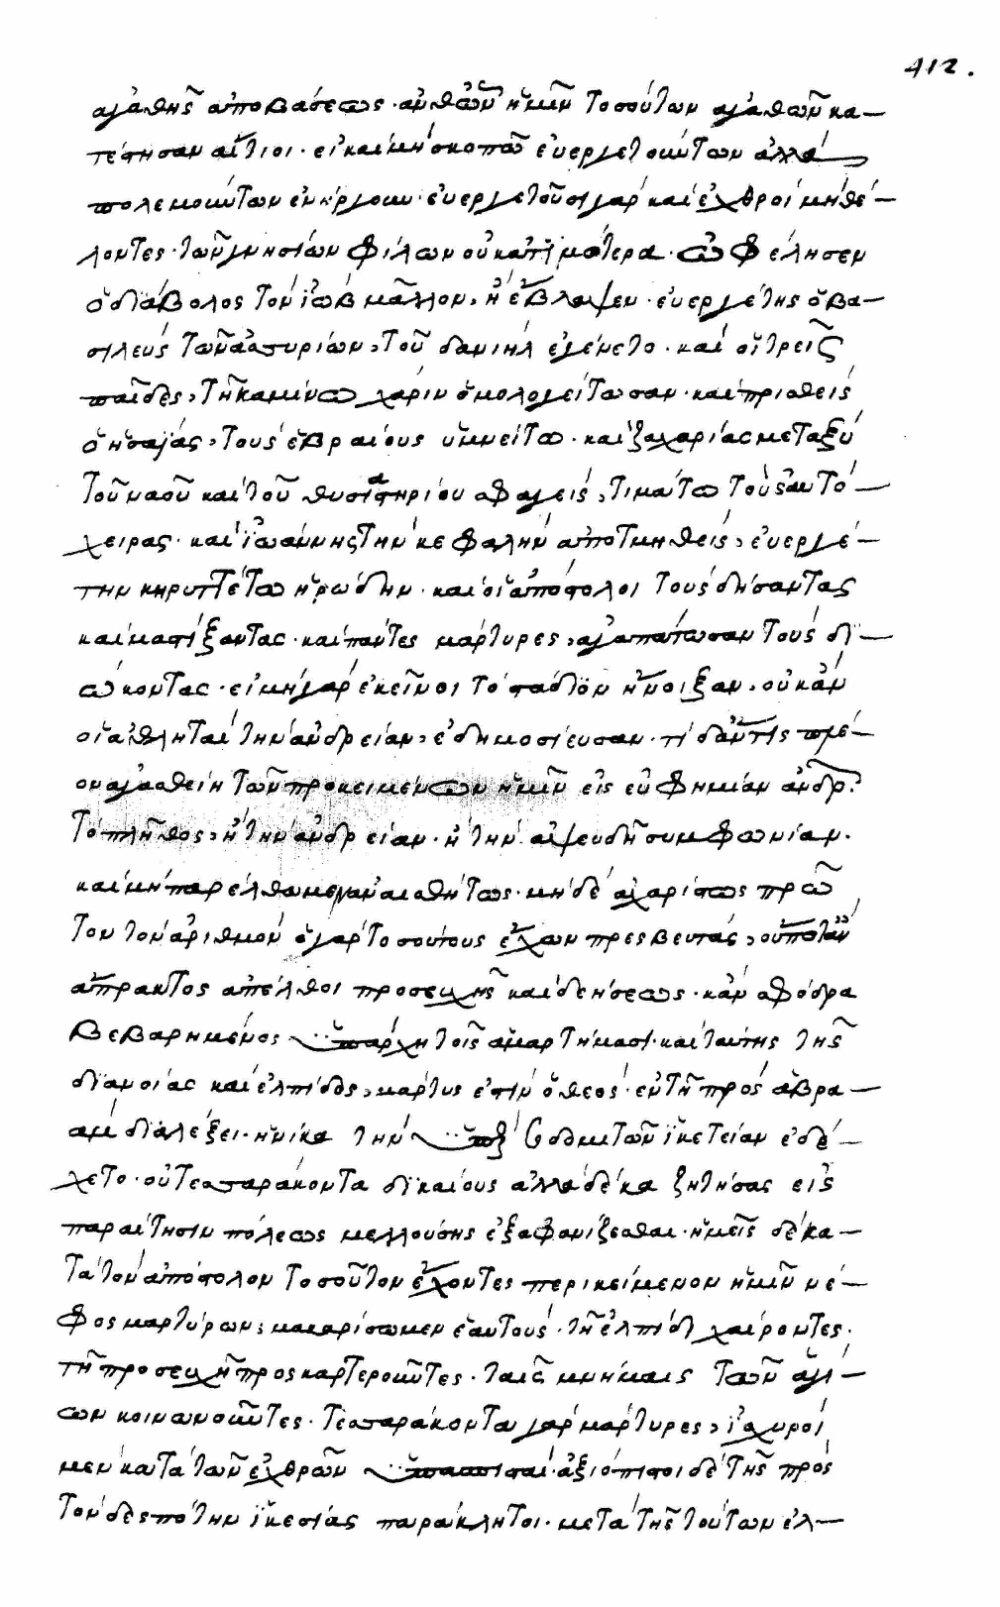 412.
ἀγαθῆς ἀποβάσεως· ἀνθῶν ἡμῖν τοσούτων ἀγαθῶν κα-
τέστησαν αἴτιοι· εἰ καὶ μὴ σκοπῶ εὐεργετούντων ἀλλὰ
πολεμούντων ἐνήργουν· εὐεργετοῦσι γὰρ καὶ ἐχθροὶ μὴ θέ-
λοντες· τῶν γνησίων φίλων οὐκ ἀτιμότερα· ὠφέλησεν
ὁ διάβολος τὸν ἰὼβ μᾶλλον, ἢ ἔβλαψεν· εὐεργέτης ὁ βα-
σιλεὺς τῶν ἀσσυρίων, τοῦ δανιὴλ ἐγένετο· καὶ οἱ τρεῖς
παῖδες, τῆ καμίνω χάριν ὁμολογείτωσαν· καὶ πρισθεὶς
ὁ ἡσαΐας, τοὺς ἑβραίους ὑμνείτω· καὶ ζαχαρίας μεταξὺ
τοῦ ναοῦ καὶ τοῦ θυσιαστηρίου σφαγεὶς, τιμάτω τοὺς αὐτό-
χειρας· καὶ ἰωάννης τὴν κεφαλὴν ἀποτμηθεὶς, εὐεργέ-
την κηρυττέτω ἡρώδην· καὶ οἱ ἀπόστολοι τοὺς δήσαντας
καὶ μαστίξαντας· καὶ πάντες μάρτυρες, ἀγαπάτωσαν τοὺς δι-
ώκοντας· εἰ μὴ γὰρ ἐκεῖνοι τὸ στάδιον ἤνοιξαν, οὐκ ἂν
οἱ ἀθληταὶ τὴν ἀνδρείαν, ἐδημοσίευσαν· τί δ' ἄν τις πλέ-
ον ἀγασθείη τῶν προκειμένων ἡμῖν εἰς εὐφημίαν ἀνδρ.
τὸ πλῆθος, ἢ τὴν ἀνδρείαν· ἢ τὴν ἀψευδῆ συμφωνίαν·
καὶ μὴ παρέλθωμεν ἀναισθήτως· μηδὲ ἀχαρίστως πρῶ
τον τὸν ἀριθμὸν ὁ γὰρ τοσούτους ἔχων πρεσβευτὰς, οὔποτ' ἂν
ἄπρακτος ἀπέλθοι προσευχῆς καὶ δεήσεως· κἂν σφόδρα
βεβαρημένος ὑπάρχη τοῖς ἁμαρτήμασι· καὶ ταύτης τῆς
διανοίας καὶ ἐλπίδος, μάρτυς ἐστὶν ὁ θεός· ἐν τῆ πρὸς ἀβρα-
ὰμ διαλέξει· ἡνίκα τὴν ὑπὲρ σοδομιτῶν ἱκετείαν ἐδέ-
χετο· οὐ τεσσαράκοντα δικαίους ἀλλὰ δέκα ζητήσας εἰς
παραίτησιν πόλεως μελλούσης ἐξαφανίζεσθαι· ἡμεῖς δὲ κα-
τὰ τὸν ἀπόστολον τοσοῦτον ἔχοντες περικείμενον ἡμῖν νέ-
φος μαρτύρων, μακαρίσωμεν ἑαυτούς· τῆ ἐλπίδι χαίροντες·
τῆ προσευχῆ προσκαρτεροῦντες· ταῖς μνήμαις τῶν ἁγί-
ων κοινωνοῦντες· τεσσαράκοντα γὰρ μάρτυρες, ἰσχυροὶ
μὲν κατὰ τῶν ἐχθρῶν ὑπασπισταί· ἀξιόπιστοι δὲ τῆς πρὸς
τὸν δεσπότην ἱκεσίας παράκλητοι· μετὰ τῆς τούτων ἐλ-